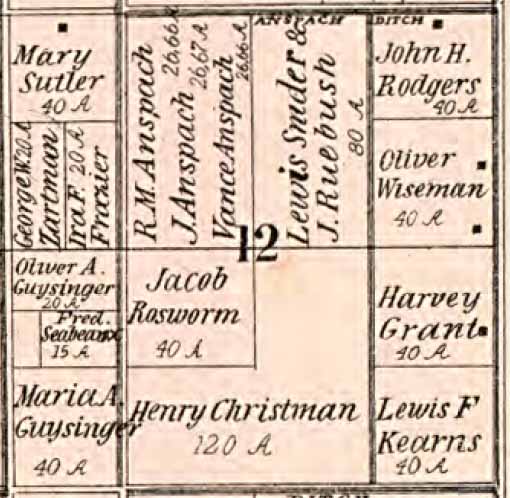 ANSPACH DITCH
Mary
Sutler
40 A
R.M. Anspach 26,66 A
J. Anspach 26,67 A
Vance Anspach 26,66 A
Lewis Snider &
J. Ruebush
80 A
John H.
Rodgers
40 A
George W. 20 A
Zartman
Ira F. 20 A
Frazier
Oliver
Wiseman
40 A
12
Oliver A.
Guysinger
20 A
Fred.
15 A
Jacob
Rosworm
40 A
Harvey
Grant
40 A
Maria A.
Guysinger
40 A
Henry Christman
120 A
Lewis F
Kearns
40 A
DITCH